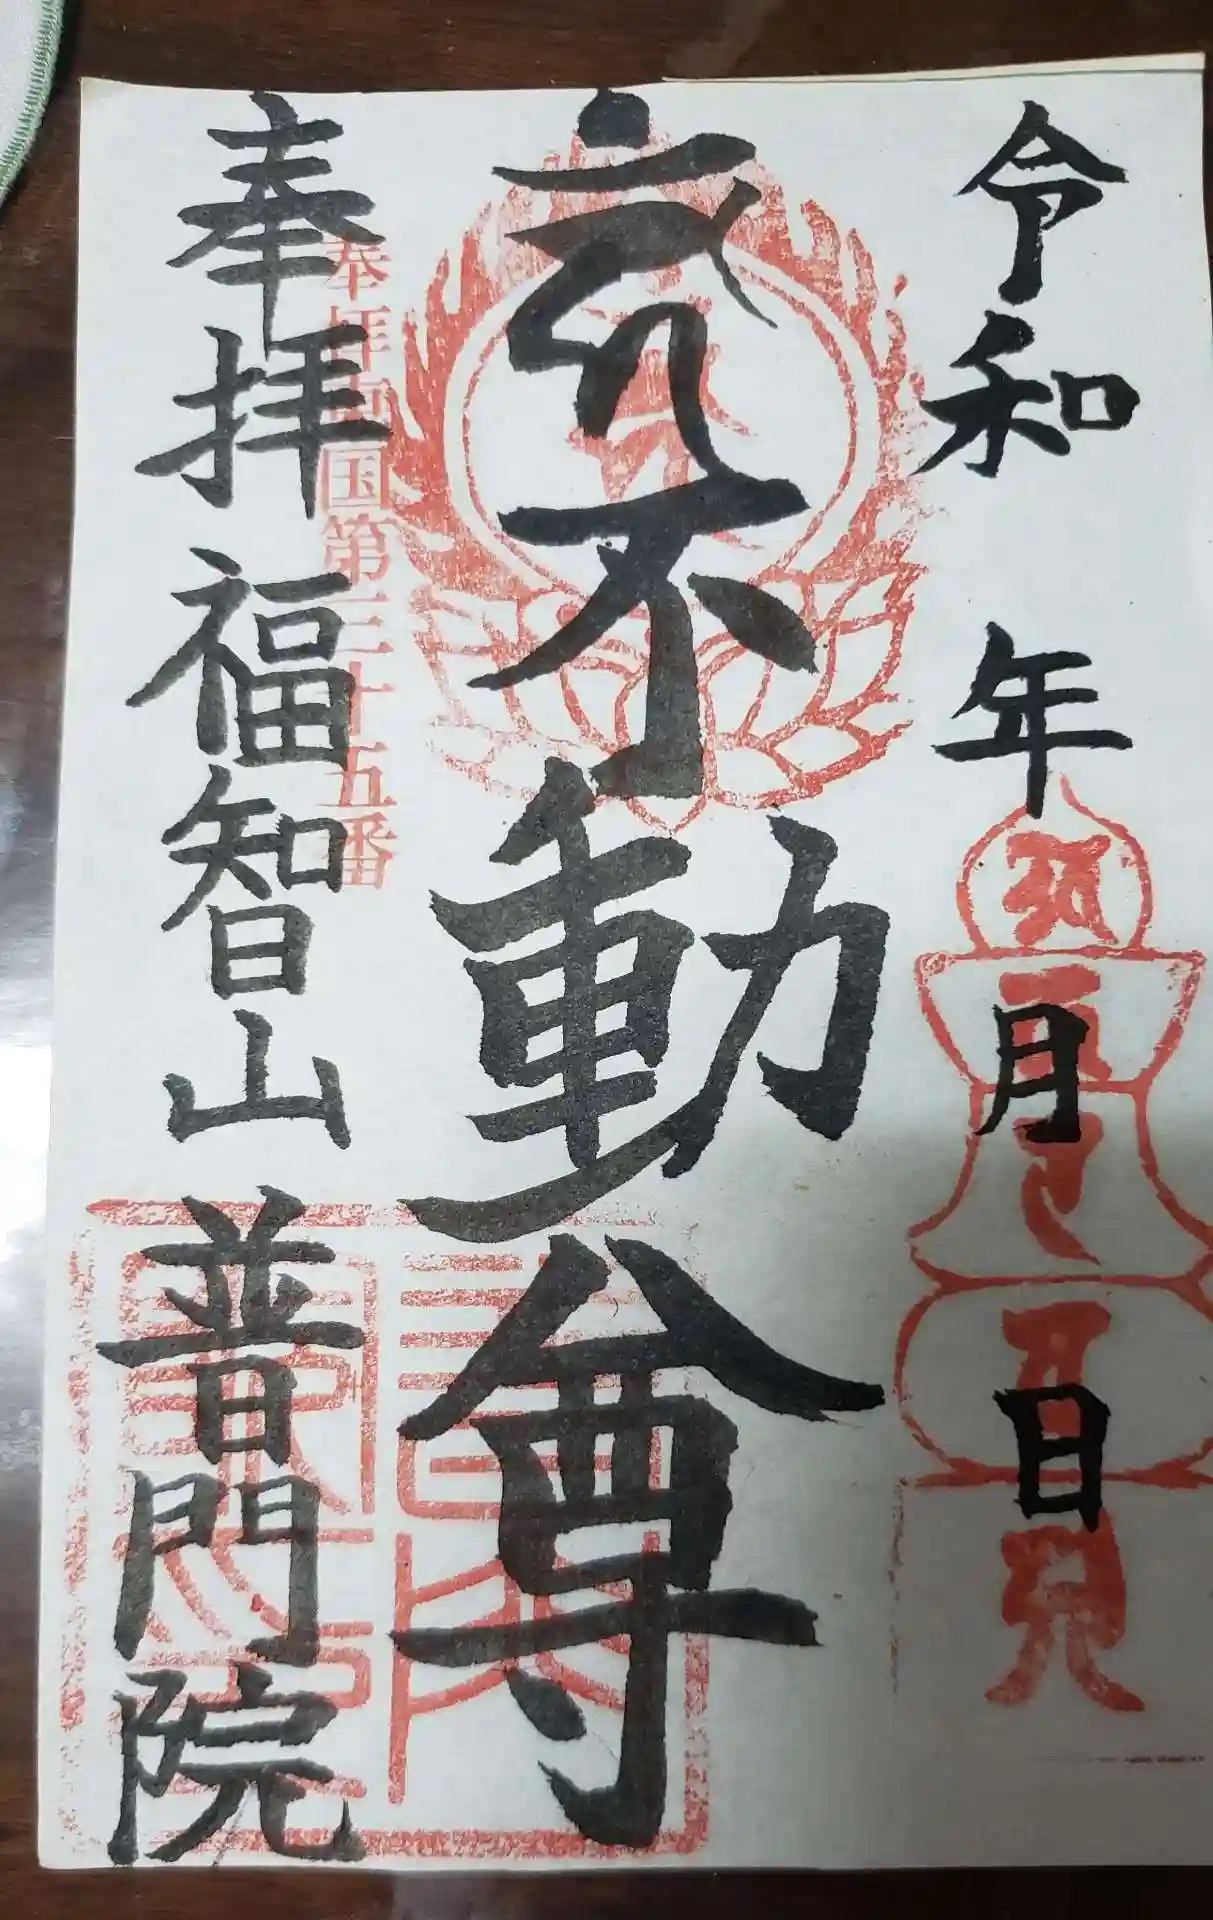 令和 年 月 日
不動尊
奉拝 福智山 普門院
国第三十五番